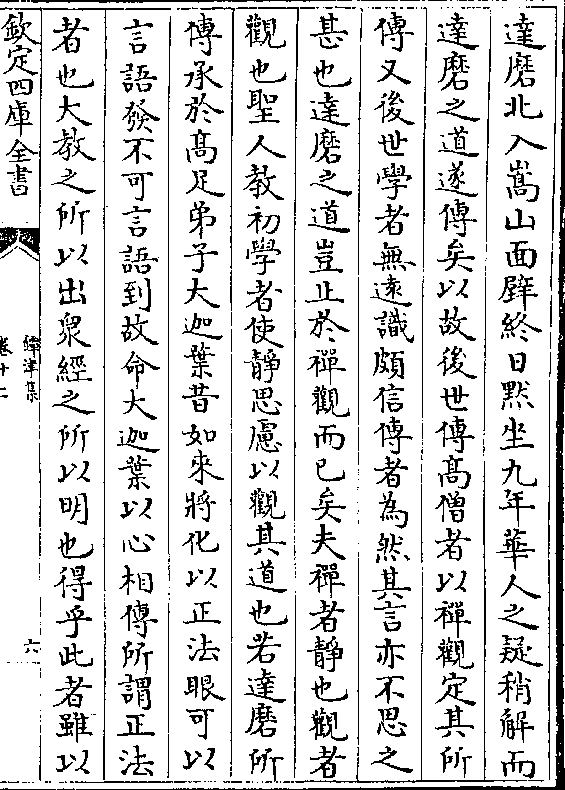 達磨北入嵩山面壁終日黙坐九年華人之疑稍解而
達磨之道遂傳矣以故後世傳髙僧者以禪觀定其所
傳又後世學者無逺識頗信傳者為然其言亦不思之
甚也達磨之道豈止於禪觀而已矣夫禪者靜也觀者
觀也聖人教初學者使靜思慮以觀其道也若達磨所
傳承於髙足弟子大迦葉昔如來將化以正法眼可以
言語發不可言語到故命大迦葉以心相傳所謂正法
者也大教之所以出衆經之所以明也得乎此者雖以
欽定四庫全書
鐔津集
卷十二
六